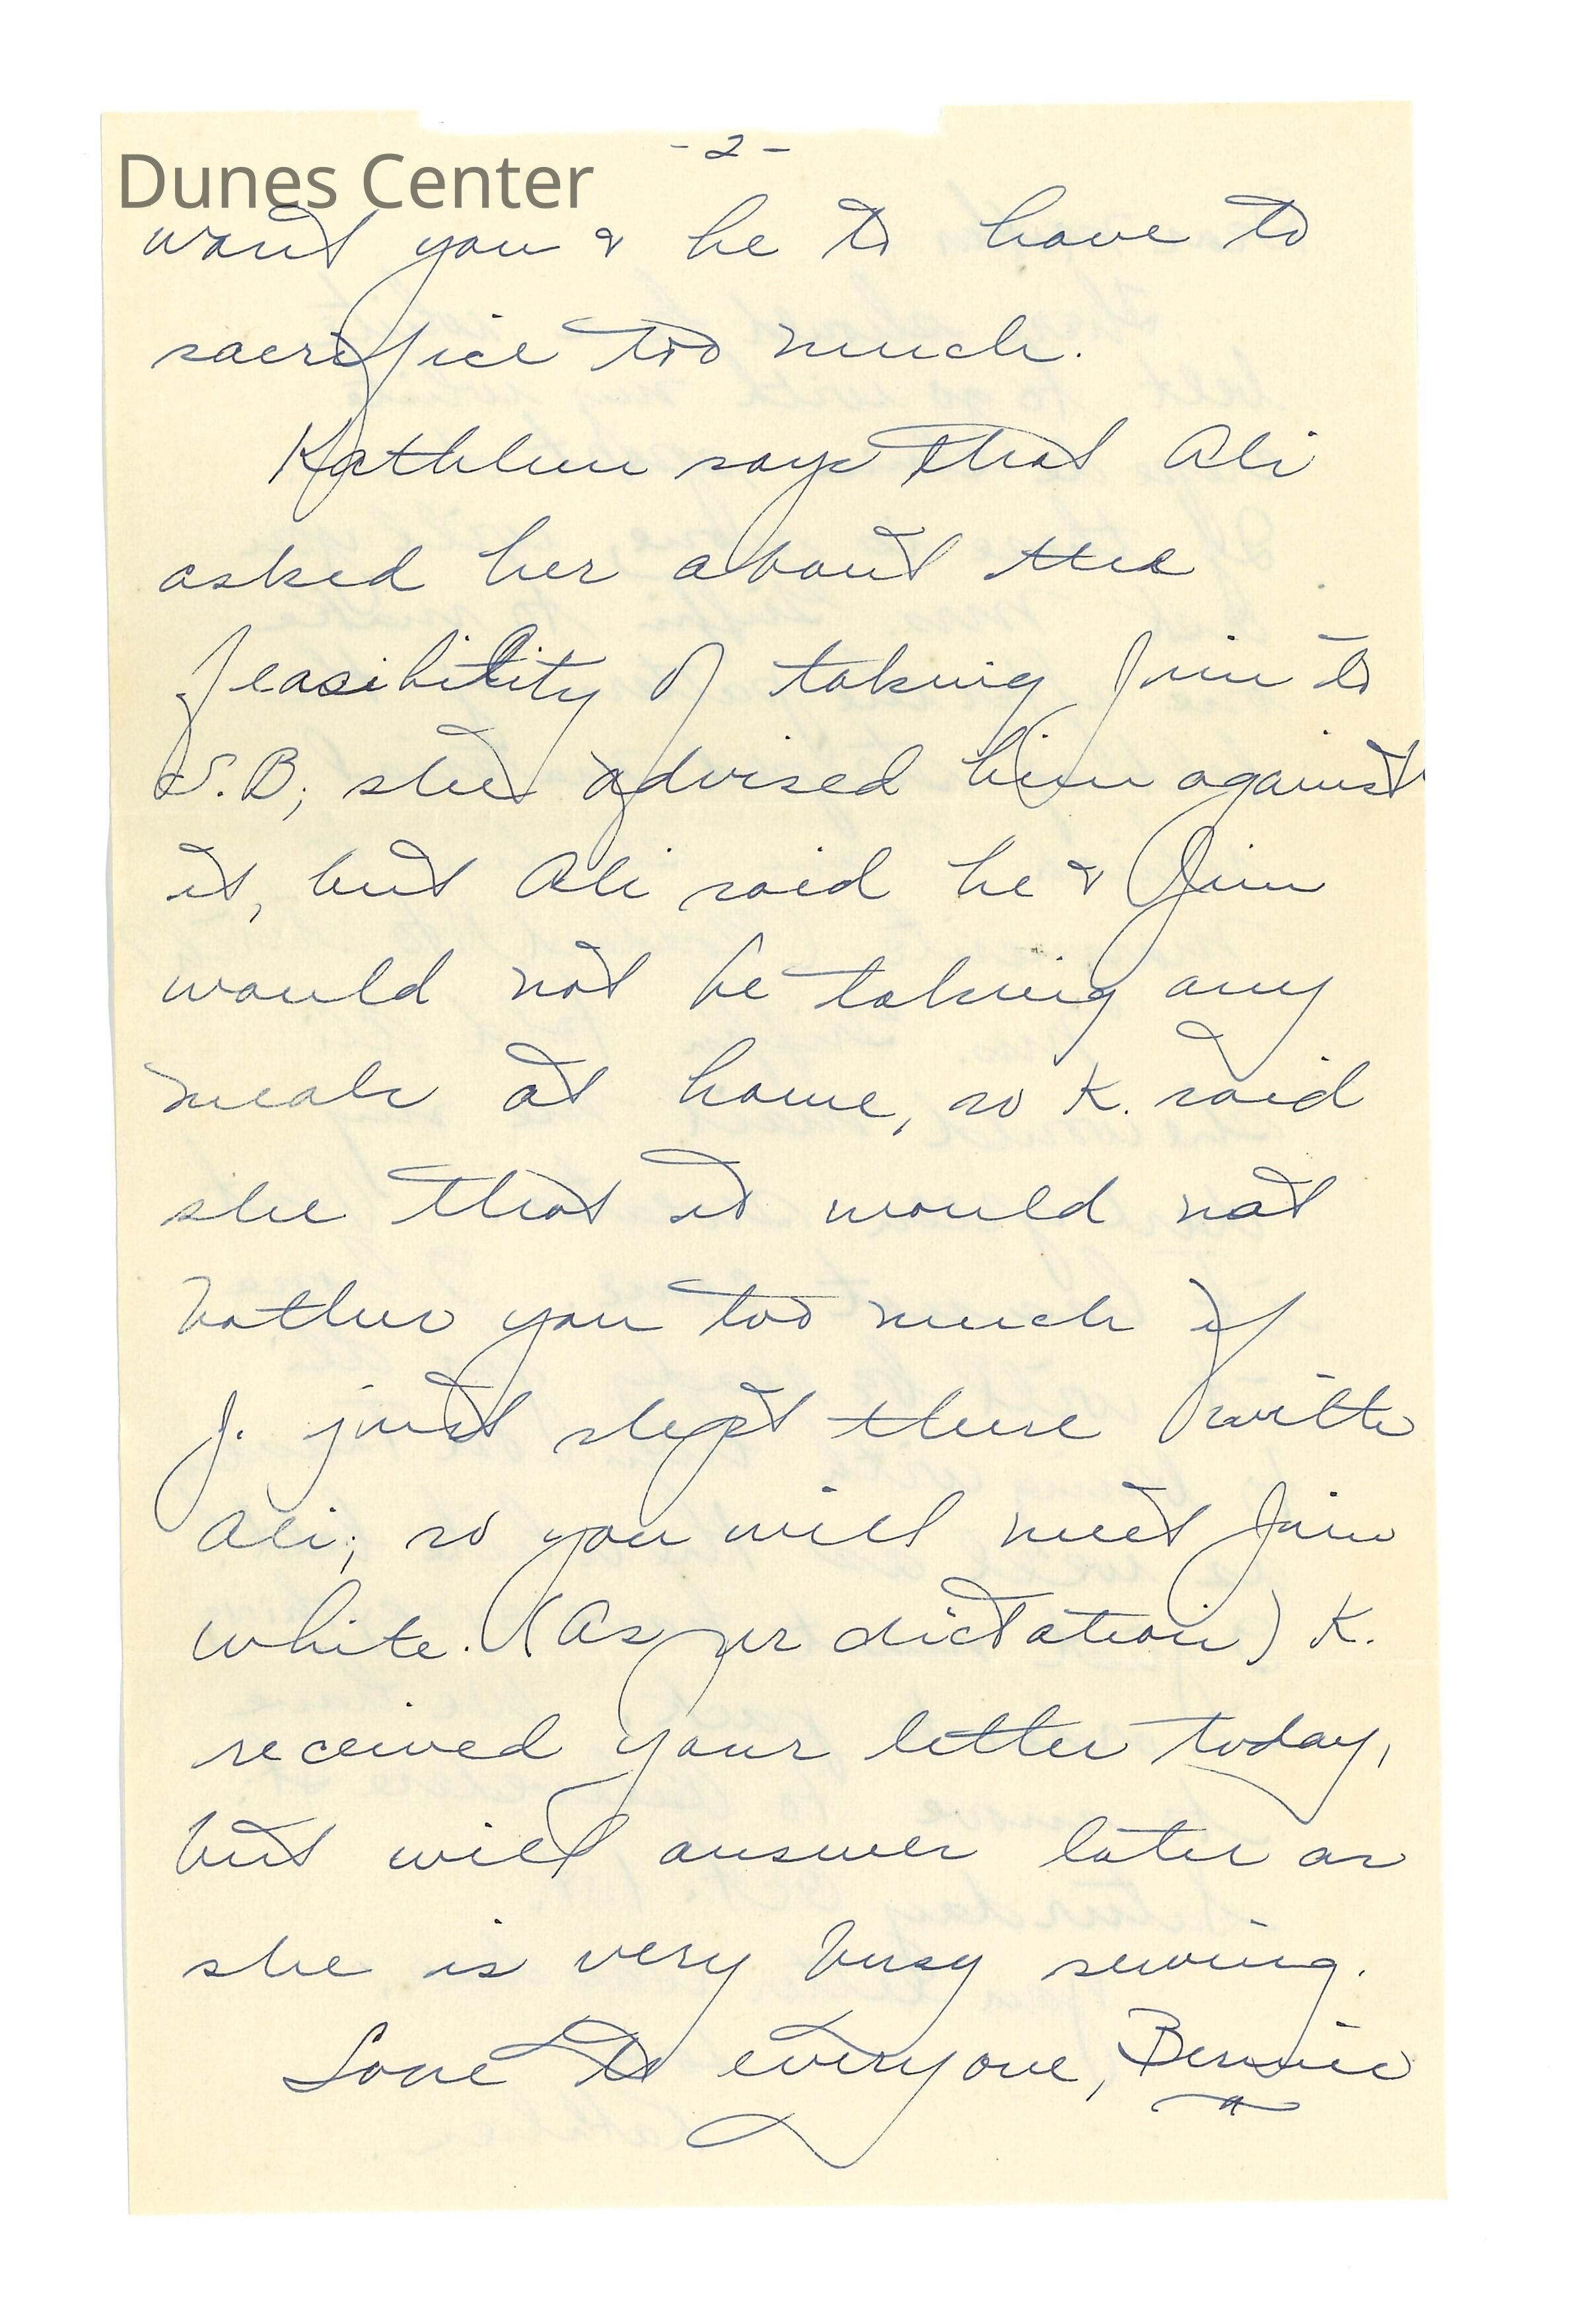 - 2 -
Dunes Center
want you & he to have to
sacrifice too much.
Kathleen says that Ali
asked her about the
feasibility of taking Jim to
S.B; she advised him against
it, but Ali said he & Jim
would not be taking any
meals at home, so K. said
she that it would not
bother you too much if
J. just slept there with
Ali; so you will meet Jim
White. (As per dictation) K.
received your letter today,
but will answer later as
she is very busy sewing.
Love to everyone, Bernie